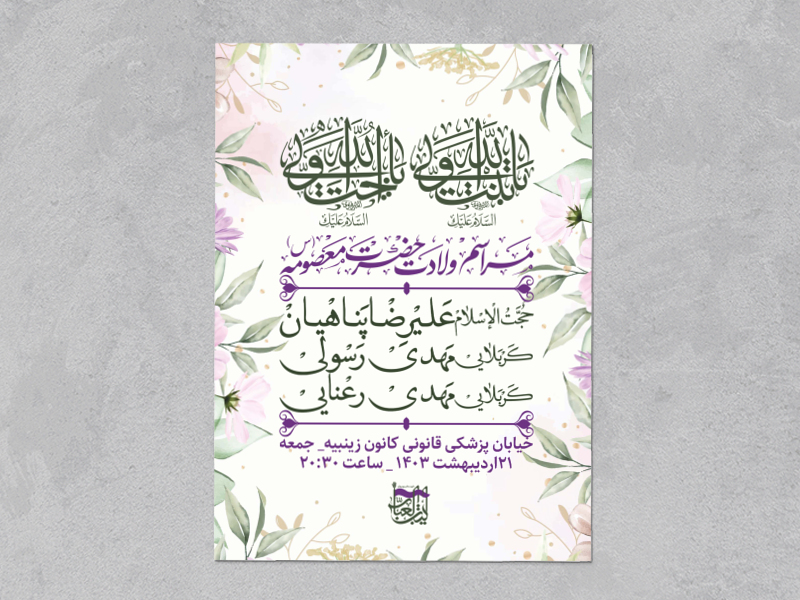 السَّلامُ عَلَیْكَ یا بِنْتَ وَلیِّ اللّٰه
السَّلامُ عَلَیْكَ یا اُخْتَ وَلیِّ اللّٰه
مراسم ولادت حضرت معصومه (س)
حُجَّتُ الْاِسْلام عَلیرِضا پَناهیان
کَربَلایی مَهدی رَسولی
کَربَلایی مَهدی رعنایی
خیابان پزشکی قانونی کانون زینبیه_ جمعه
۲۱اردیبهشت ۱۴۰۳ _ ساعت ۲۰:۳۰